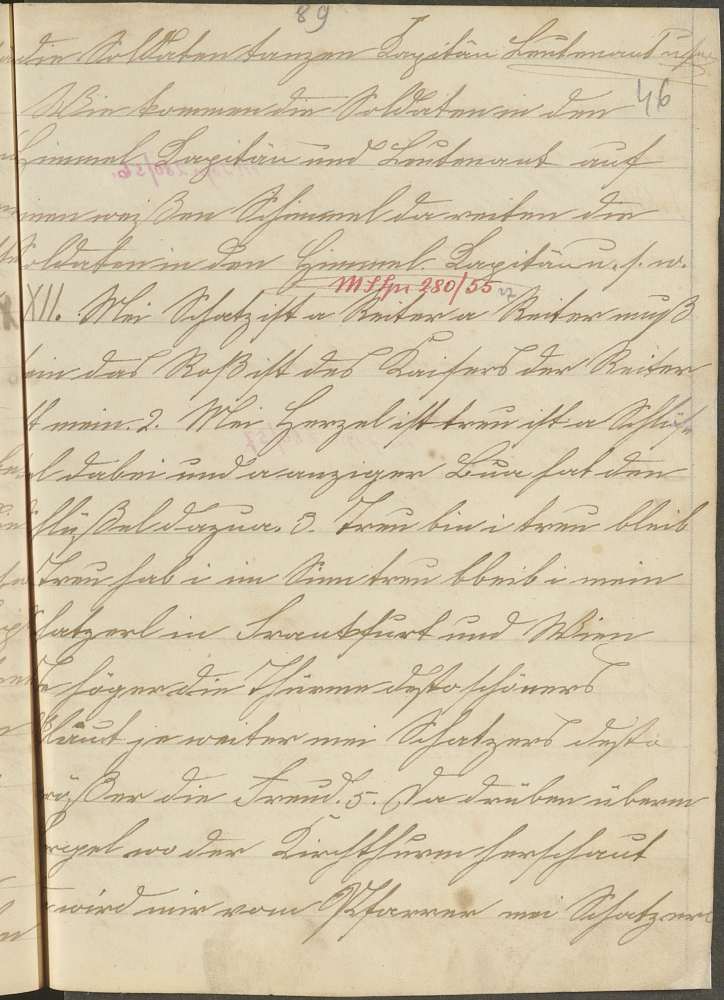 89
die Soldaten tanzen Kapitän Leutenant u.s.w.
46
Wie kommen die Soldaten in den
Himmel Kapitän und Leutenant auf
einen weißen Schimmel da reiten die
Soldaten in den Himmel Kapitän u. s. w.
280/55
XII. Mei Schatz ist a Reiter a Reiter muß
sein das Roß ist des Kaisers der Reiter
ist mein. 2. Mei Herzel ist treu ist a Schlüs-
sel dabei und a anziger Bua hat den
Schlüßel dazua. 3. Treu bin i treu bleib
i Treu hab i im Sinn treu bleib i mein
Schatzerl in Frankfurt und Wien
Je höger die Thürme desto schöners
Gläut je weiter mei Schatzerl desto
größer die Freud. 5. Da drüben überm
Bergel wo der Kirchthurm herschaut
wird mir vom Pfarrer mei Schatzerl